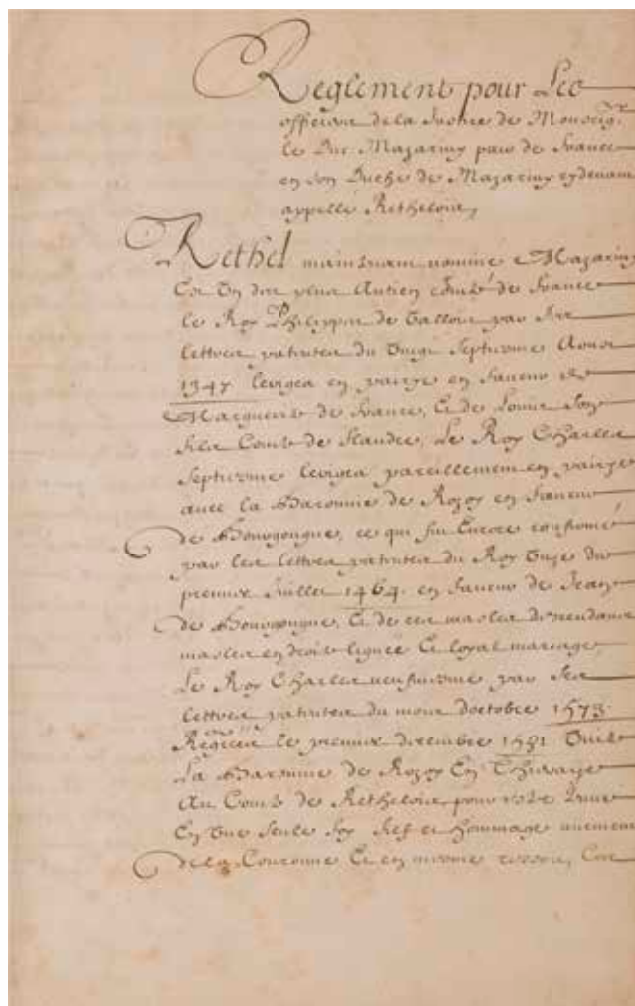 Reglement pour Les
officiers de la Justice de Monseigr.
le Duc Mazariny pair de France
en son Duché de Mazariny cydevant
appellé Rethelois,
Rethel maintenant nommé Mazariny
Est Un des plus Antien Comté de France
le Roy Philippes de Vallois par ses
lettres patentes du Vingt Septiesme Aoust
1347 lerigea en pairye en faveur de
Marguerite de France, Et de Louis Son
fils Comte de Flandre, Le Roy Charles
Septiesme lerigea pareillement en pairye
avec la Baronnie de Rozoy en faveur
de Bourgongne, ce qui fut Encore confirmé
par les lettres patentes du Roy Unze du
premier Juillet 1464. en faveur de Jean
de Bourgongne, Et de ses masles descendans
masles en droite lignée Et loyal mariage,
Le Roy Charles neufviesme par Ses
lettres patentes du mois doctobre 1573.
le premier decembre 1581 Unit
La Baronnie de Rozoy En
Au Comté de Rethelois, pour estre
En Une Seule foy et hommage
de la Couronne Et en mesme ressort,